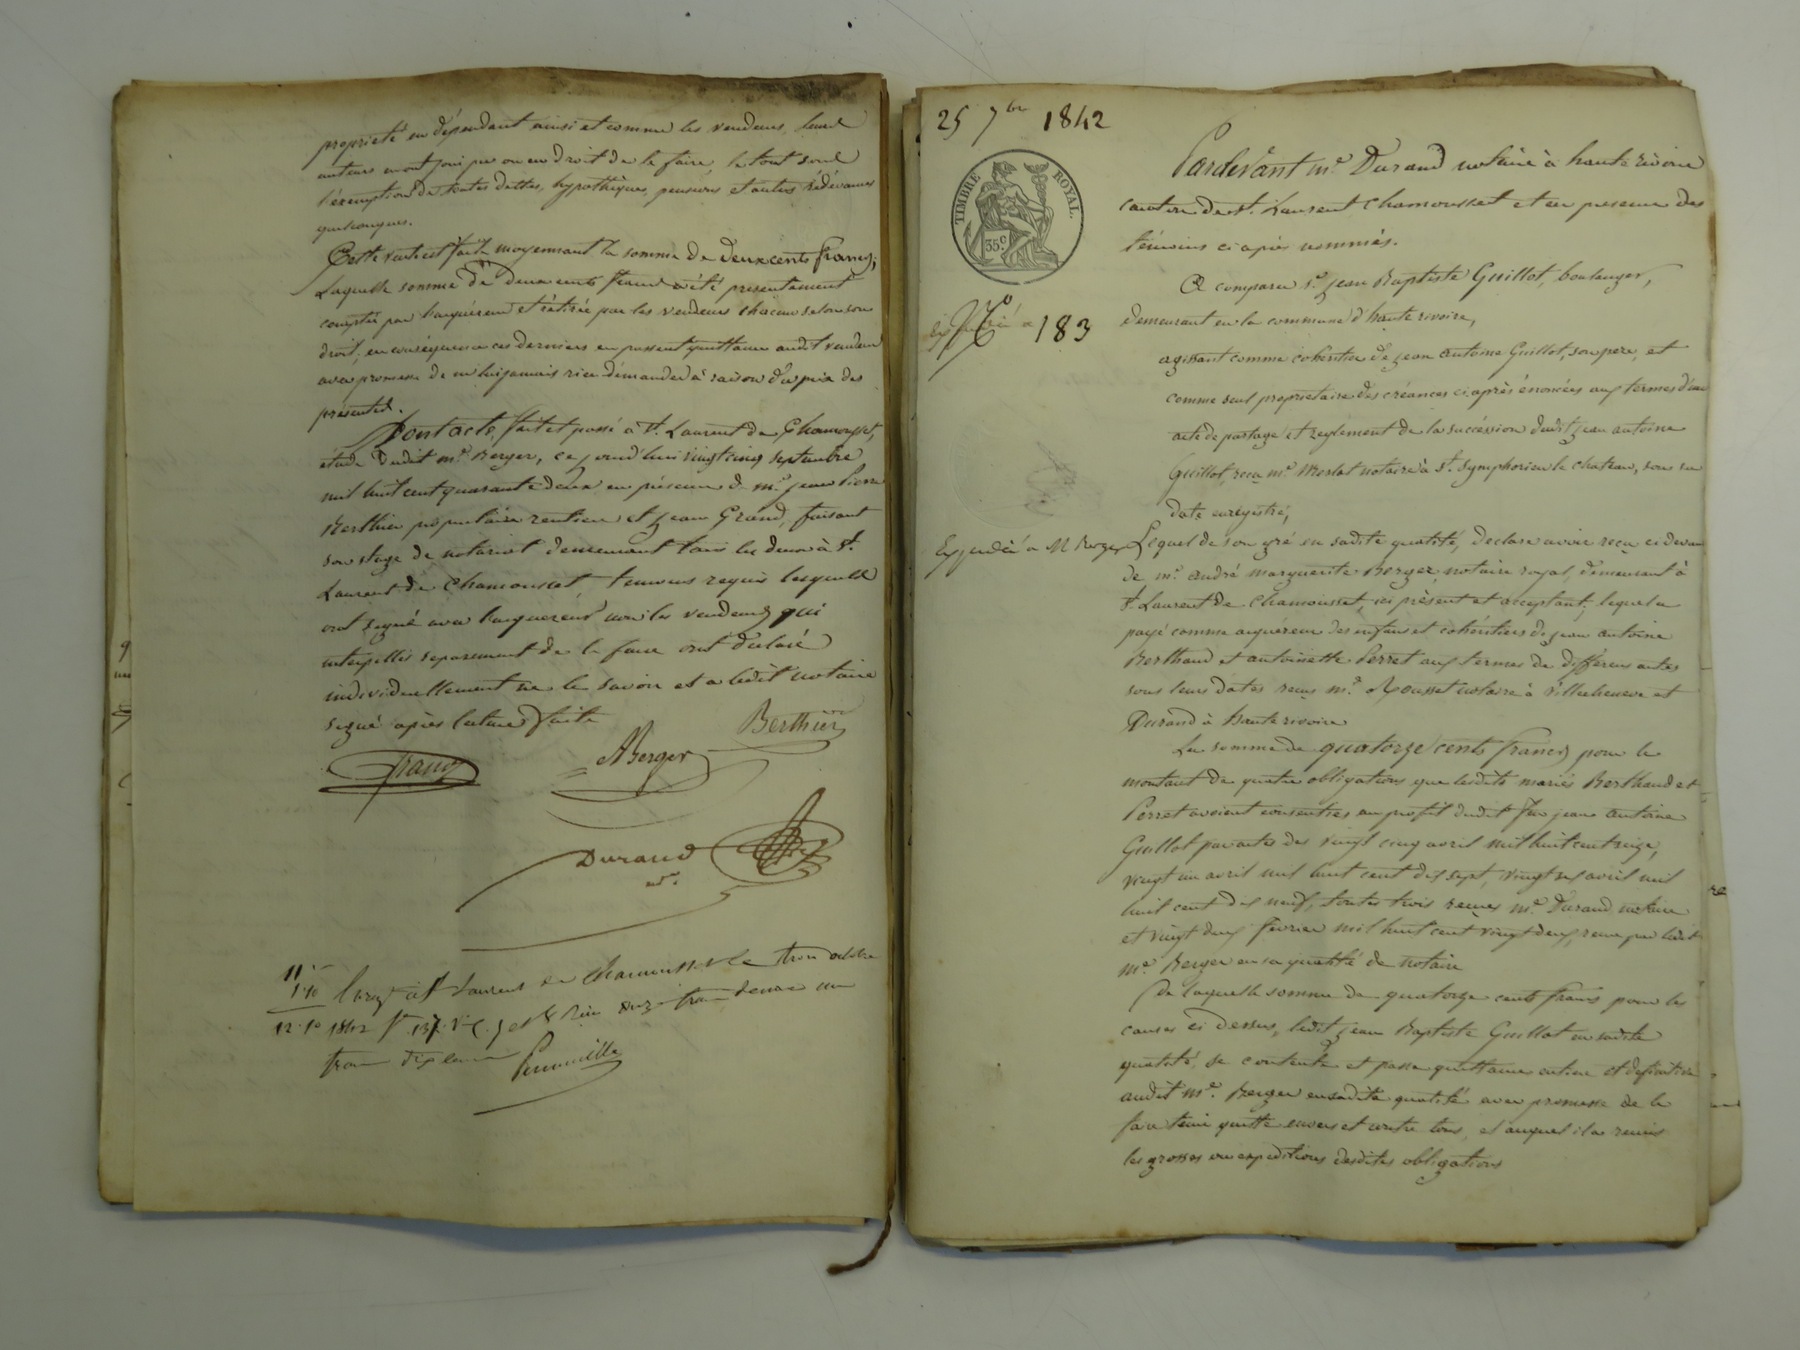 propriété en dépendant ainsi et comme les vendeurs, leurs
auteurs en ont joui pu ou eu droit de le faire, le tout sous
l'exemption de toutes dettes, hypothèques, pensions et autres rédévances
quelconques.
Cette vente est faite moyennant la somme de deux cents francs,
Laquelle somme de deux cents francs a été présentement
comptée par l'acquéreur et rétirée par les vendeurs chacun selon son
droit, en conséquence ces derniers en passent quittance audit
avec promesse de ne lui jamais rien demander à raison du prix des
présentes.
Dont acte, fait et passé à St. Laurent de Chamousset,
étude dudit me. Berger, ce jourd'hui vingt cinq septembre
mil huit cent quarante deux, en présence de mr. jean Pierre
Berthier propriétaire rentier et jean Grand, faisant
son stage de notariat demeurant tous les deux à St.
Laurent de Chamousset, temoins requis lesquels
ont signé avec l'acquereur non les vendeurs qui
interpellés separement de le faire ont déclaré
individuellement ne le savoir et a ledit notaire
signé après lecture faite
Berthier
Grand
ABerger
Durand
nre.
11"
1.10
12.10
Enrgt. à St Laurent de Chamousset le trois octobre
1842 fo. 137 vo. reçu onze francs decime un
franc dix centimes
25 7bre 1842
TIMBRE ROYAL.
35c
No 183
Expedié a M Berger
Pardevant me. Durand notaire à haute rivoire
canton de St. Laurent Chamousset et en presence des
témoins ci après nommés.
A comparu sr. jean Baptiste Guillot, boulanger,
demeurant en la commune d'haute rivoire,
agissant comme cohéritier de jean antoine Guillot, son pere, et
comme seul proprietaire des créances ci après énoncées aux termes d'un
acte de partage et reglement de la succession dudit jean antoine
Guillot, reçu me. notaire à St. Symphorien le chateau, sous sa
date enregistré,
Lequel de son gré en sadite qualité, declare avoir reçu ci devant
de me. andré marguerite Berger, notaire royal, demeurant à
St. Laurent de Chamousset, ici présent et acceptant, lequel a
payé comme acquéreur des enfans et cohéritiers de jean antoine
Berthaud et antoinette Perret aux termes de différens actes
sous leurs dates reçus me. Rousset notaire à Villecheneve et
Durand à haute rivoire
La somme de quatorze cents francs pour le
montant de quatre obligations que lesdits mariés Berthaud et
Perret avoient consenties au profit dudit feu jean antoine
Guillot par actes des vingt cinq avril mil huit cent seize,
vingt un avril mil huit cent dix sept, vingt six avril mil
huit cent dix neuf, toutes trois reçues me. Durand notaire
et vingt deux février mil huit cent vingt deux, reçue par ledit
me. Berger en sa qualité de notaire
De laquelle somme de quatorze cents francs pour les
causes ci dessus, ledit jean Baptiste Guillot en sadite
qualité, se contente et passe quittance entiere et definitive
audit me. Berger en sadite qualité avec promesse de le
faire tenir quitte envers et contre tous, et auquel il a remis
les grosses ou expeditions desdites obligations